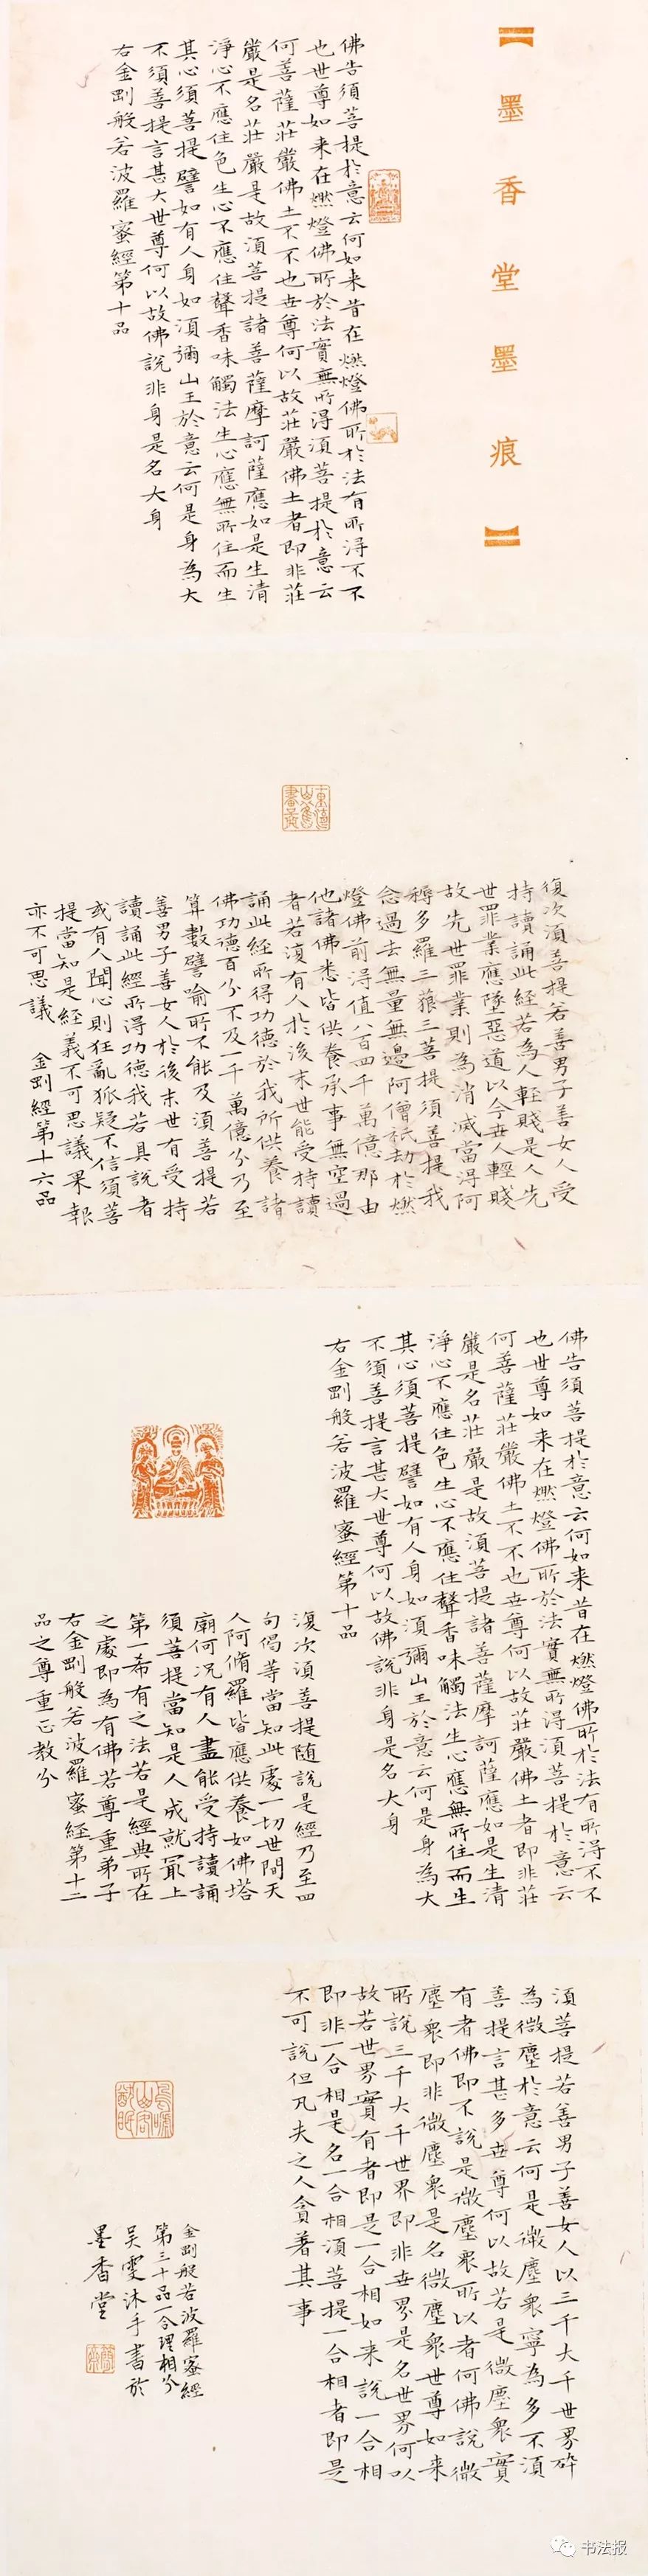 【墨香堂墨痕】
佛告須菩提於意云何如来昔在燃燈佛所於法有所得不不
也世尊如来在燃燈佛所於法實無所得須菩提於意云
何菩薩莊嚴佛土不不也世尊何以故莊嚴佛土者即非莊
嚴是名莊嚴是故須菩提諸菩薩摩訶薩應如是生清
淨心不應住色生心不應住聲香味觸法生心應無所住而生
其心須菩提譬如有人身如須彌山王於意云何是身為大
不須菩提言甚大世尊何以故佛說非身是名大身
右金剛般若波羅蜜經第十品
復次須菩提若善男子善女人受
持讀誦此經若為人輕賤是人先
世罪業應墮惡道以今世人輕賤
故先世罪業則為消滅當得阿
耨多羅三藐三菩提須菩提我
念過去無量無邊阿僧祇劫於燃
燈佛前得值八百四千萬億那由
他諸佛悉皆供養承事無空過
者若復有人於後末世能受持讀
誦此經所得功德於我所供養諸
佛功德百分不及一千萬億分乃至
算數譬喻所不能及須菩提若
善男子善女人於後末世有受持
讀誦此經所得功德我若具說者
或有人聞心則狂亂狐疑不信須菩
提當知是經義不可思議果報
亦不可思議 金剛經第十六品
佛告須菩提於意云何如来昔在燃燈佛所於法有所得不不
也世尊如来在燃燈佛所於法實無所得須菩提於意云
何菩薩莊嚴佛土不不也世尊何以故莊嚴佛土者即非莊
嚴是名莊嚴是故須菩提諸菩薩摩訶薩應如是生清
淨心不應住色生心不應住聲香味觸法生心應無所住而生
其心須菩提譬如有人身如須彌山王於意云何是身為大
不須菩提言甚大世尊何以故佛說非身是名大身
右金剛般若波羅蜜經第十品
復次須菩提随說是經乃至四
句偈等當知此處一切世間天
人阿脩羅皆應供養如佛塔
廟何況有人盡能受持讀誦
須菩提當知是人成就冣上
第一希有之法若是經典所在
之處即為有佛若尊重弟子
右金剛般若波羅蜜經第十二
品之尊重正教分
須菩提若善男子善女人以三千大千世界碎
為微塵於意云何是微塵衆寧為多不須
菩提言甚多世尊何以故若是微塵衆實
有者佛即不說是微塵衆所以者何佛說微
塵衆即非微塵衆是名微塵衆世尊如来
所說三千大千世界即非世界是名世界何以
故若世界實有者即是一合相如来說一合相
即非一合相是名一合相須菩提一合相者即是
不可說但凡夫之人貪著其事
金剛般若波羅蜜經
第三十品一合理相分
吴雯沐手書於
墨香堂
书法报